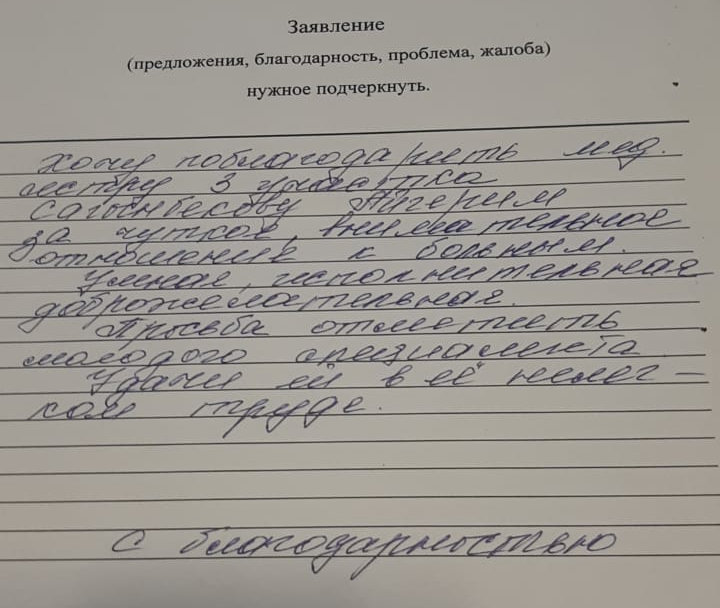 Заявление
(предложения, благодарность, проблема, жалоба)
нужное подчеркнуть.
Хочу поблагодарить мед.
сестру 3 участка
Сагынбекову Айгерим
за чуткое, внимательное
отношение к больным.
Умная, исполнительная
доброжелательная.
Просьба отметить
молодого специалиста
Удачи ей в её нелег-
ком труде.
С благодарностью